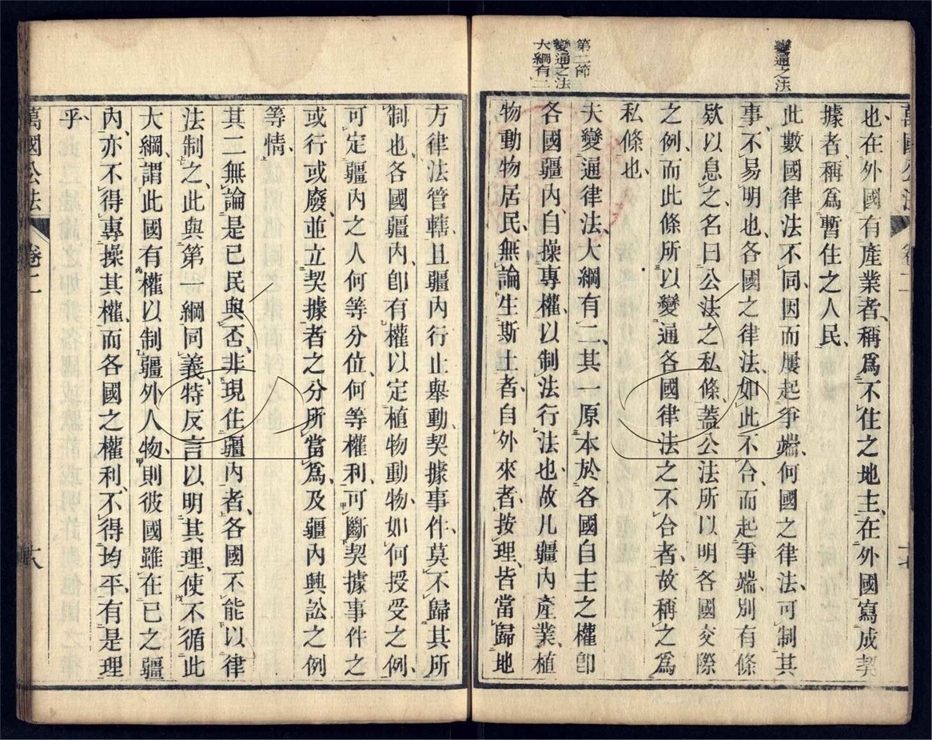 萬國公法 卷二
變通之法
也在外國有產業者稱爲不住之地主在外國寫成契
據者稱爲暫住之人民
此數國律法不同因而屢起爭端何國之律法可制其
事不易明也各國之律法如此不合而起爭端別有條
欵以息之名曰公法之私條蓋公法所以明各國交際
之例而此條所以變通各國律法之不合者故稱之爲
私條也
第二節
變通之法
大綱有二
夫變通律法大綱有二其一原本於各國自主之權卽
各國疆內自操專權以制法行法也故凡疆內產業植
物動物居民無論生斯土者自外來者按理皆當歸地
方律法管轄且疆內行止舉動契據事件莫不歸其所
制也各國疆內卽有權以定植物動物如何授受之例
可定疆內之人何等分位何等權利可斷契據事件之
或行或廢並立契據者之分所當爲及疆內興訟之例
等情
其二無論是已民與否非現住疆內者各國不能以律
法制之此與第一綱同義特反言以明其理使不循此
大綱謂此國有權以制疆外人物則彼國雖在已之疆
內亦不得專操其權而各國之權利不得均平有是理
乎
萬國公法 卷二 十八